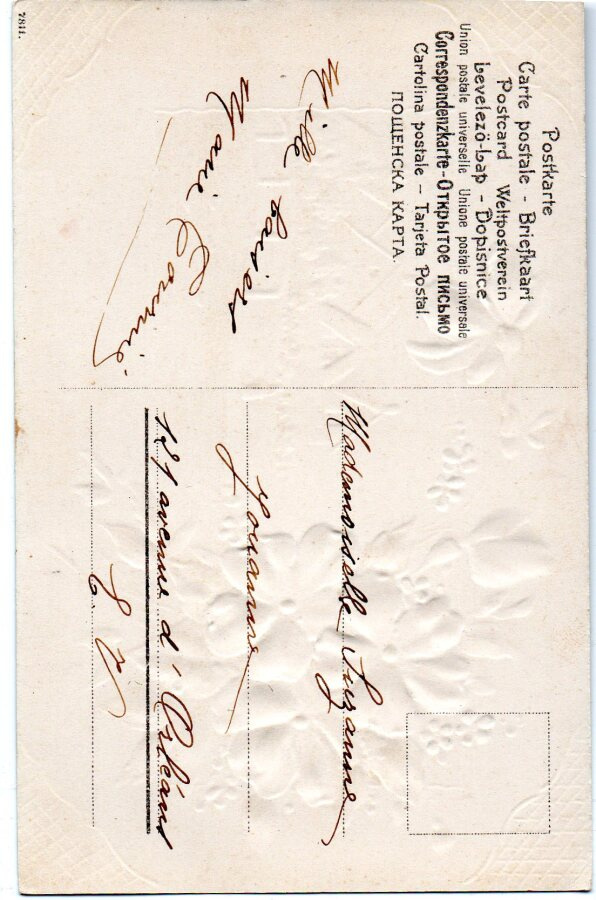 Postkarte
Carte postale - Briefkaart
Postcard Weltpostverein
Levelező-Lap - Dopisnice
Union postale universelle Unione postale universale
Correspondenzkarte - Открытое письмо
Cartolina postale - Tarjeta Postal.
ПОЩЕНСКА КАРТА.
Mille baisers
Marie
Mademoiselle Suzanne
121 avenue d'Orléans
7811.